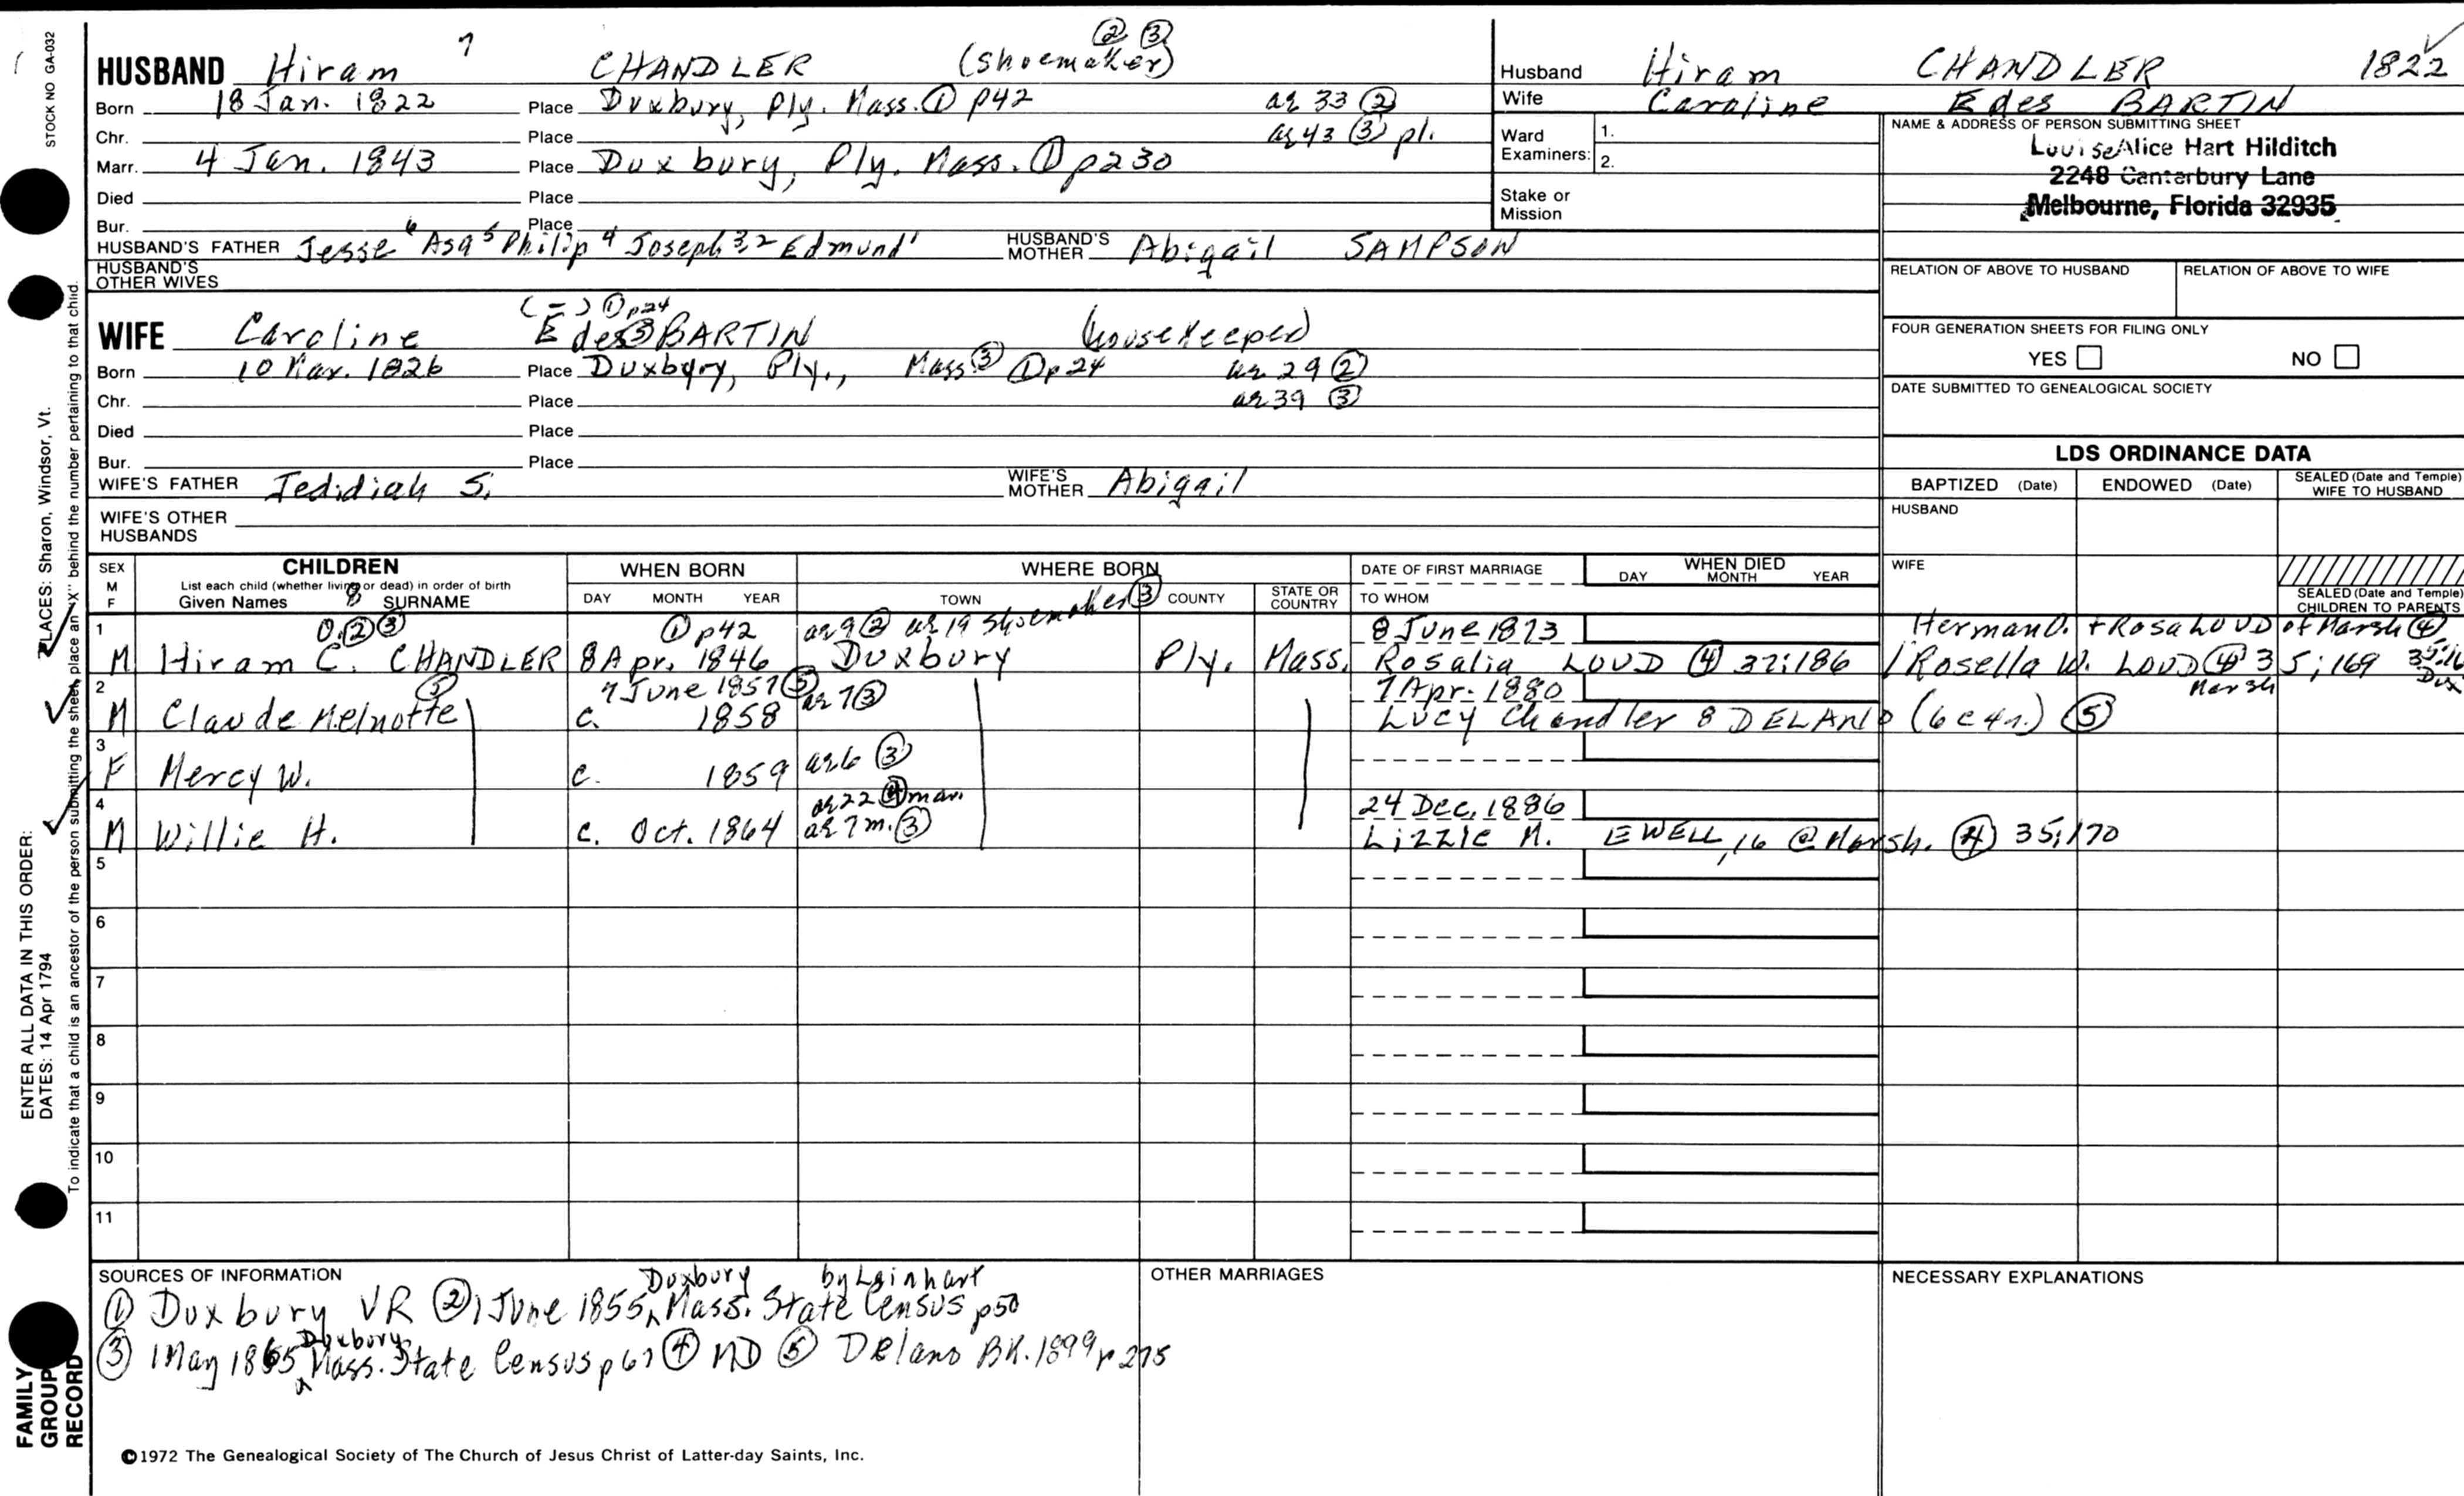 STOCK NO GA-032
HUSBAND Hiram 7 CHANDLER (shoemaker) ② ③
Born 18 Jan. 1822 Place Duxbury, Ply. Mass. ① p42 ae 33 ②
Chr. Place ae 43 ③ pl.
Marr. 4 Jan. 1843 Place Duxbury, Ply. Mass. ① p230
Died Place
Bur. Place
HUSBAND'S FATHER Jesse 6 Asa 5 Philip 4 Joseph 3,2 Edmund 1 HUSBAND'S MOTHER Abigail SAMPSON
HUSBAND'S OTHER WIVES
Husband Hiram CHANDLER 1822
Wife Caroline Edes BARTIN
Ward Examiners: 1.
2.
Stake or Mission
NAME & ADDRESS OF PERSON SUBMITTING SHEET
Louise Alice Hart Hilditch
2248 Canterbury Lane
Melbourne, Florida 32935
RELATION OF ABOVE TO HUSBAND RELATION OF ABOVE TO WIFE
FOUR GENERATION SHEETS FOR FILING ONLY
YES NO
DATE SUBMITTED TO GENEALOGICAL SOCIETY
(-) ① p24
WIFE Caroline Edes ③ BARTIN (housekeeper)
Born 10 Mar. 1826 Place Duxbury, Ply., Mass ③ ① p24 ae 29 ②
Chr. Place ae 39 ③
Died Place
Bur. Place
WIFE'S FATHER Jedidiah S. WIFE'S MOTHER Abigail
WIFE'S OTHER HUSBANDS
LDS ORDINANCE DATA
BAPTIZED (Date) ENDOWED (Date) SEALED (Date and Temple) WIFE TO HUSBAND
HUSBAND
WIFE
SEALED (Date and Temple) CHILDREN TO PARENTS
SEX M F CHILDREN
List each child (whether living or dead) in order of birth
Given Names 8 SURNAME
WHEN BORN
DAY MONTH YEAR
WHERE BORN
TOWN COUNTY STATE OR COUNTRY
DATE OF FIRST MARRIAGE
TO WHOM
WHEN DIED
DAY MONTH YEAR
1 O. ② ③ ① p42 ae 9 ② ae 19 shoemaker ③ 8 June 1873 Herman O. + Rosa LOUD of Marsh ④
M Hiram C. CHANDLER 8 Apr. 1846 Duxbury Ply. Mass. Rosalia LOUD ④ 32:186 / Rosella W. LOUD ④ 35;169
Marsh Dux
2 ⑤ 7 June 1857 ⑤ ae 7 ③ 7 Apr. 1880
M Claude Melnotte c. 1858 Lucy Chandler 8 DELANO ⑤
3
F Mercy W. c. 1859 ae 6 ③
4 ae 22 ④ mar. 24 Dec. 1886
M Willie H. c. Oct. 1864 ae 7 m. ③ Lizzie M. EWELL, 16 @ Marsh. ④ 35;170
5
6
7
8
9
10
11
SOURCES OF INFORMATION
① Duxbury VR ② 1 June 1855 Duxbury Mass. State Census by Lainhart p50
③ 1 May 1865 Duxbury Mass. State Census p67 ④ MD ⑤ Delano BK. 1899 p 275
OTHER MARRIAGES
NECESSARY EXPLANATIONS
©1972 The Genealogical Society of The Church of Jesus Christ of Latter-day Saints, Inc.
ENTER ALL DATA IN THIS ORDER:
DATES: 14 Apr 1794
PLACES: Sharon, Windsor, Vt.
To indicate that a child is an ancestor of the person submitting the sheet, place an "X" behind the number pertaining to that child.
FAMILY GROUP RECORD